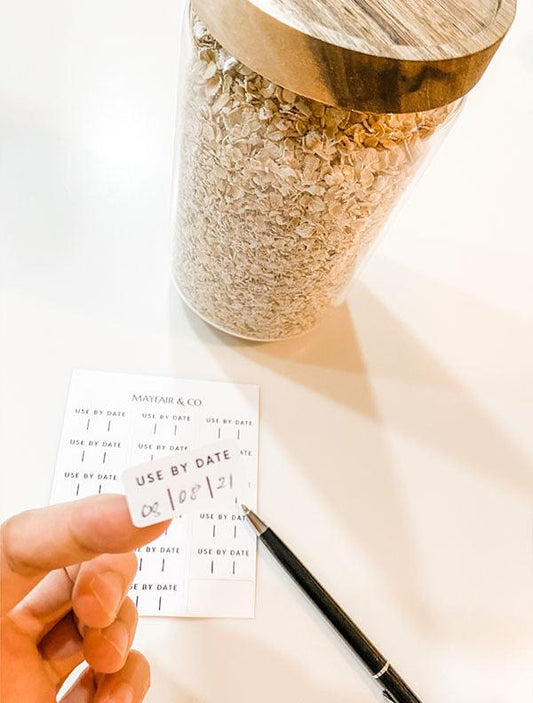 MAYFAIR & CO.
USE BY DATE USE BY DATE USE BY DATE
USE BY DATE USE BY DATE USE BY DATE
USE BY DATE
USE BY DATE
08|08|21
USE BY DATE
USE BY DATE USE BY DATE
USE BY DATE